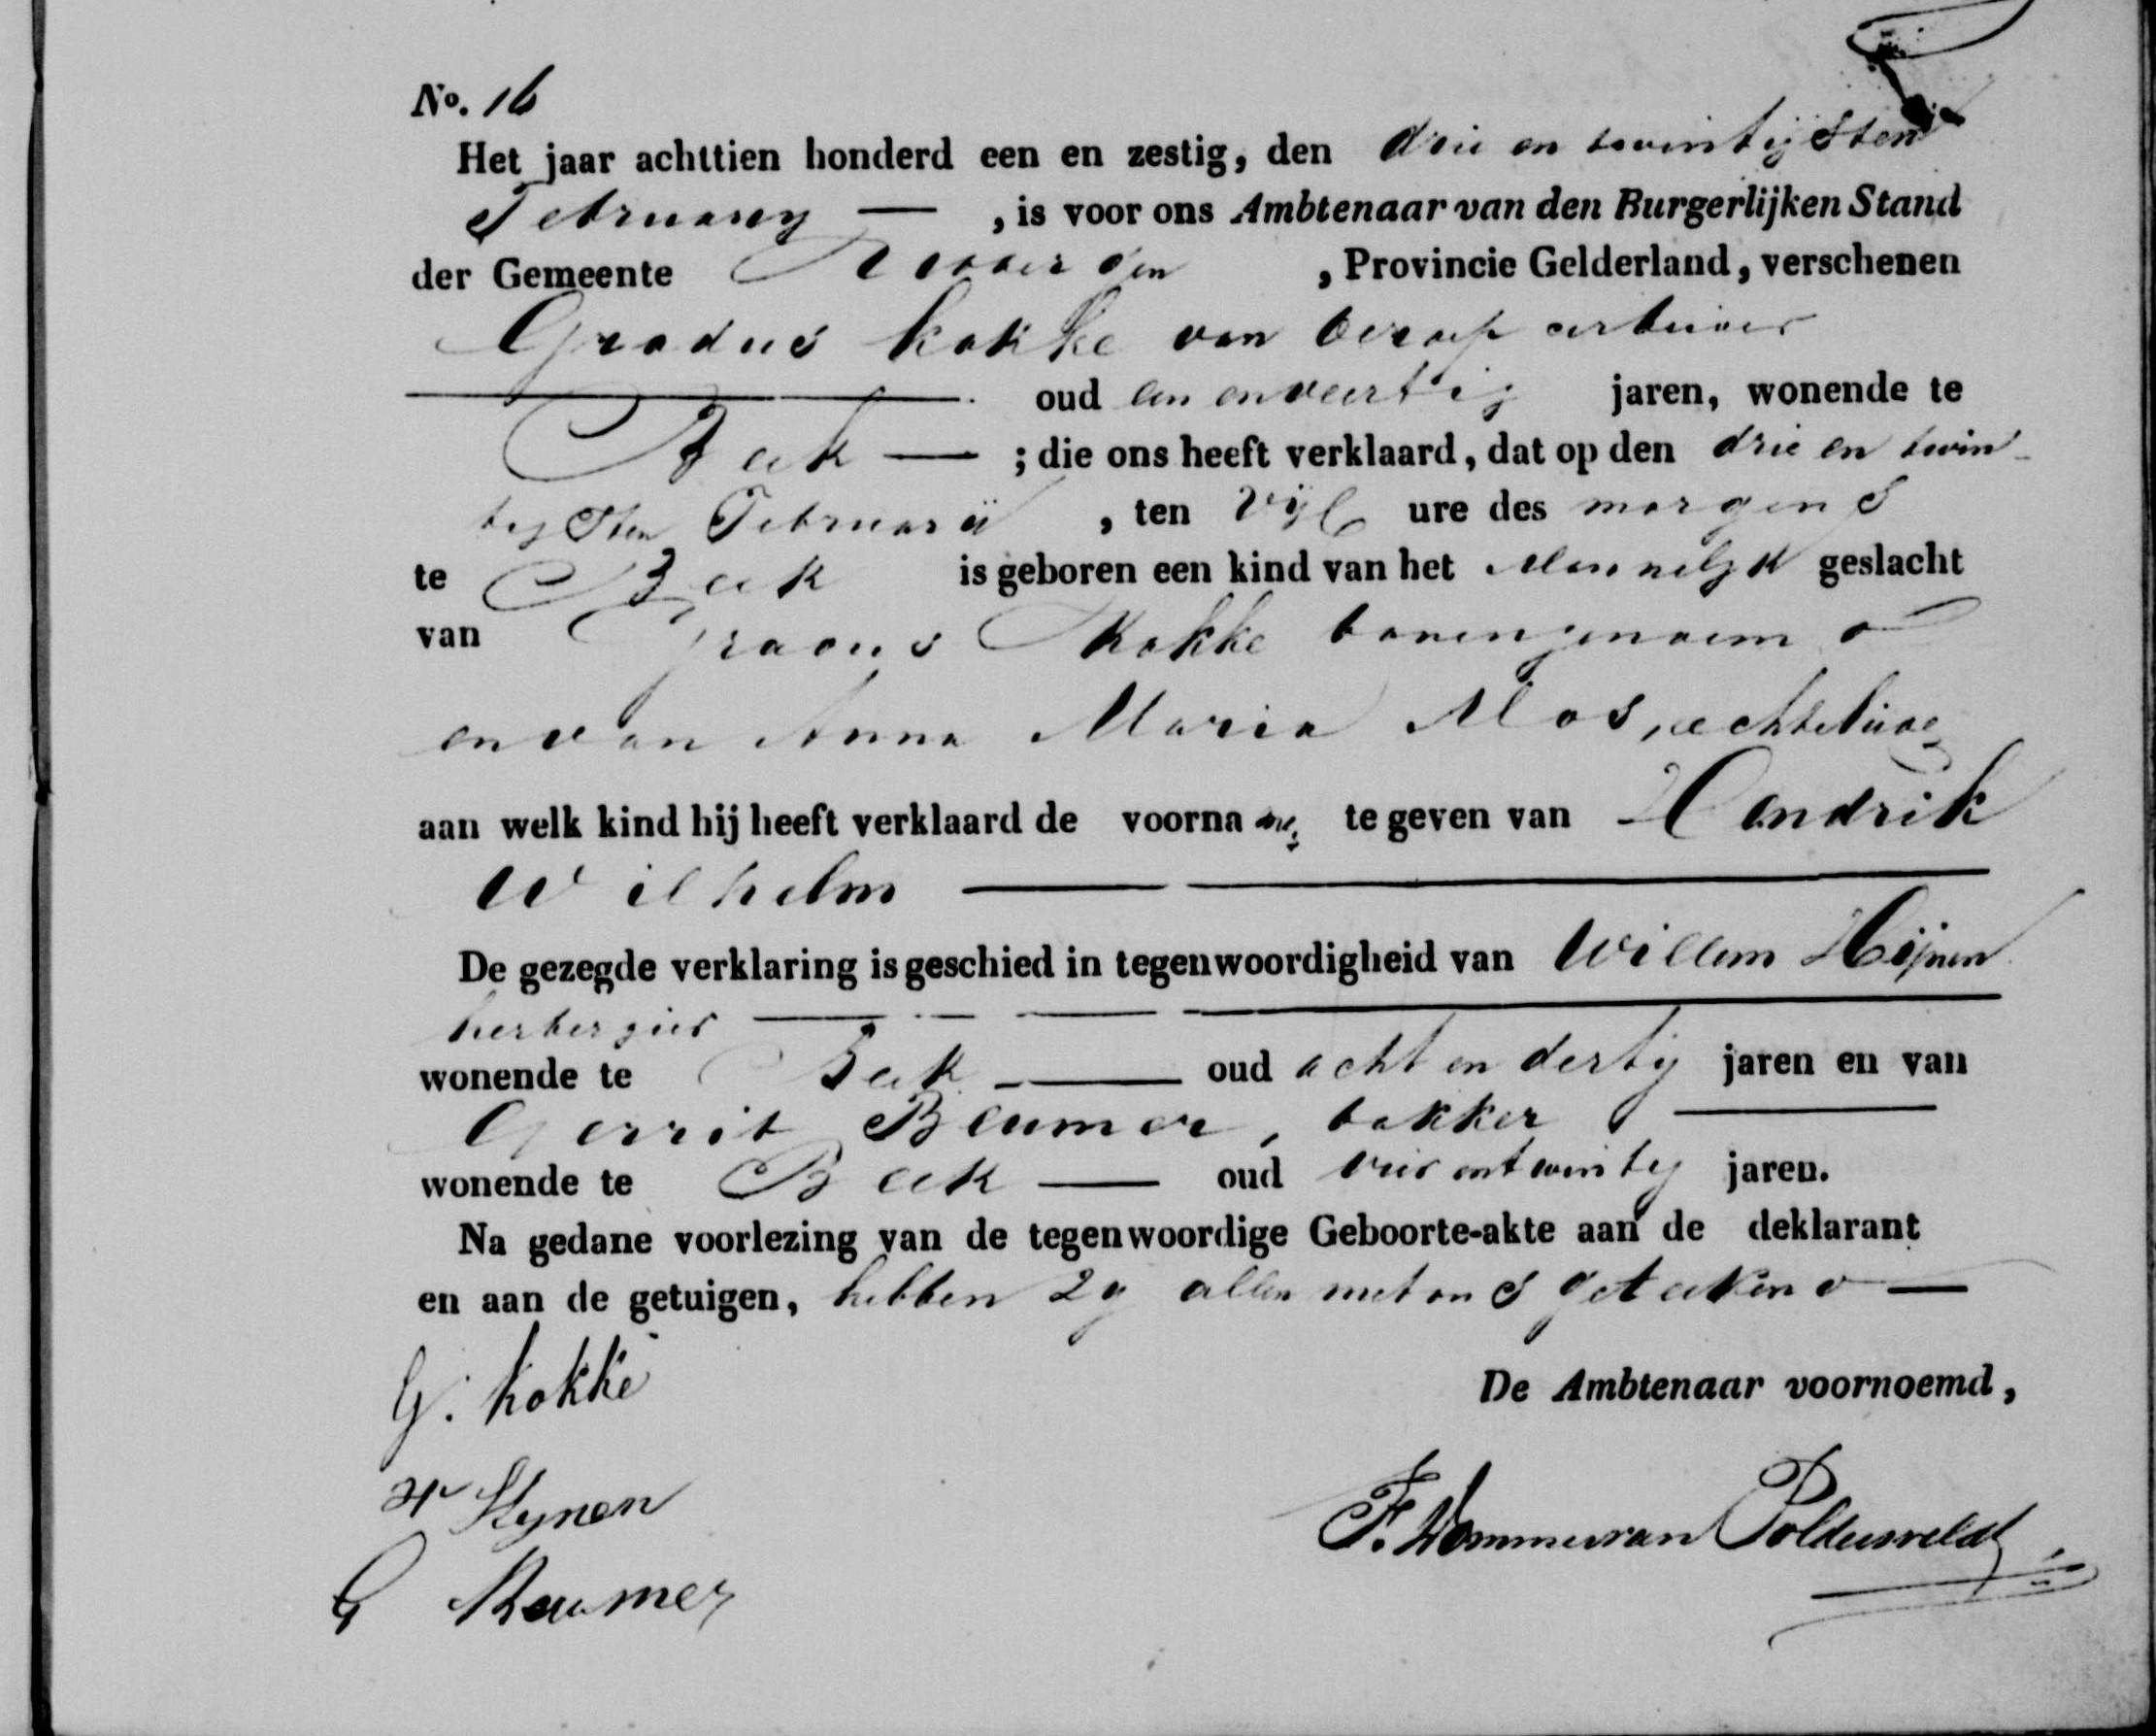 No. 16
Het jaar achttien honderd een en zestig, den drie en twintigsten
February — , is voor ons Ambtenaar van den Burgerlijken Stand
der Gemeente , Provincie Gelderland, verschenen
Gradus Kokke van beroep arbeider
oud een en veertig jaren, wonende te
Beek — ; die ons heeft verklaard, dat op den drie en twin-
tigsten Februarij , ten vijf ure des morgens
te Beek is geboren een kind van het Mannelijk geslacht
van Gradus Kokke bovengenoemd
en van Anna Maria Mos, echtelieden
aan welk kind hij heeft verklaard de voorna men te geven van Hendrik
Wilhelm —
De gezegde verklaring is geschied in tegenwoordigheid van Willem Heijnen
herbergier —
wonende te Beek — oud acht en dertig jaren en van
Gerrit Beumer, bakker —
wonende te Beek — oud vier en twintig jaren.
Na gedane voorlezing van de tegenwoordige Geboorte-akte aan de deklarant
en aan de getuigen, hebben zy allen met ons geteekend —
G. Kokke
De Ambtenaar voornoemd,
W Heynen
F. van Polderveldt
G Beumer